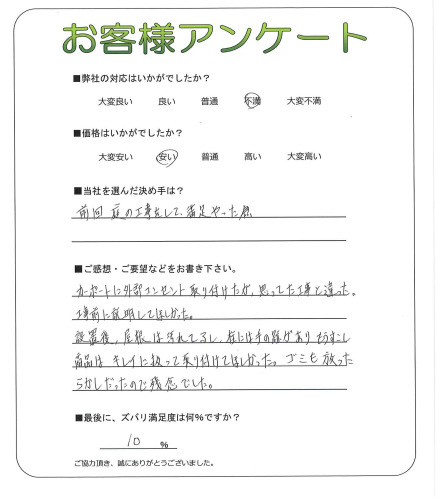 お客様アンケート
■弊社の対応はいかがでしたか？
大変良い　良い　普通　不満　大変不満
■価格はいかがでしたか？
大変安い　安い　普通　高い　大変高い
■当社を選んだ決め手は？
前回庭の工事をして、満足やった為
■ご感想・ご要望などをお書き下さい。
カーポートに外部コンセント取り付けたが、思ってた工事と違った。
工事前に説明してほしかった。
設置後、屋根は汚れてるし、柱には手の跡があり もうすこし
商品は キレイに扱って取り付けてほしかった。ゴミも放った
らかしだったので残念でした。
■最後に、ズバリ満足度は何%ですか？
10 %
ご協力頂き、誠にありがとうございました。